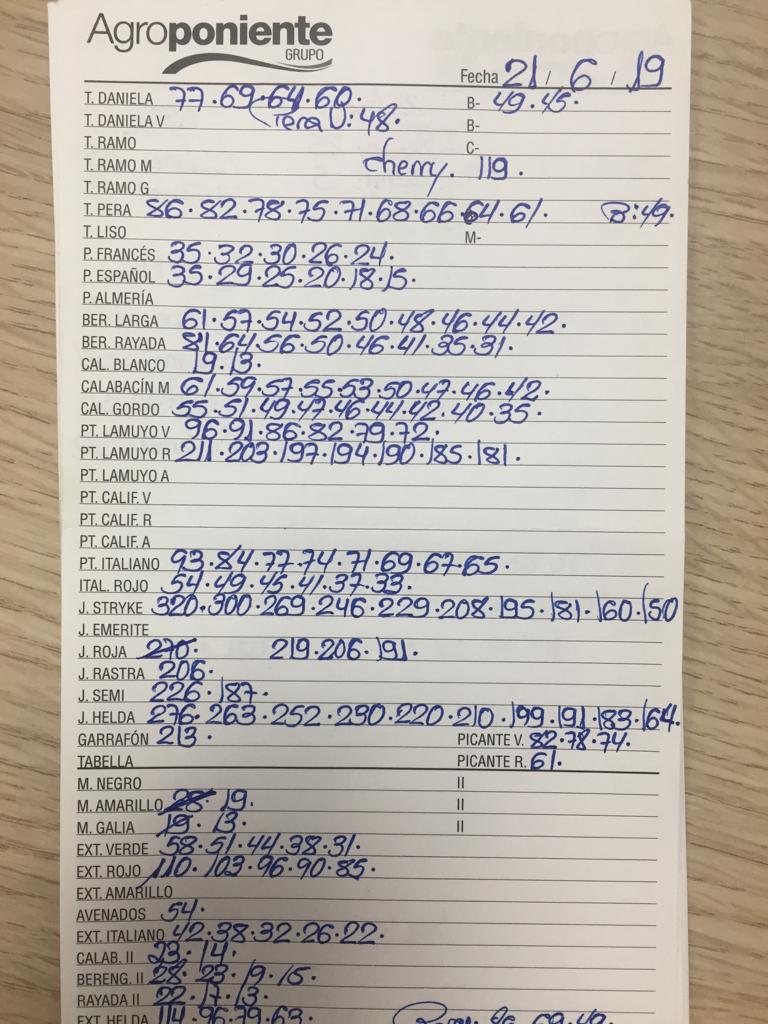 Agroponiente
GRUPO
Fecha 21 / 6 / 19
T. DANELA 77.69.64.60. B- 49.45.
T. DANIELA V (Pera V: 48. B-
T. RAMO C-
T. RAMO M cherry. 119.
T. RAMO G
T. PERA 86.82.78.75.71.68.66.64.61. B:49.
T. LISO M-
P. FRANCÉS 35.32.30.26.24.
P. ESPAÑOL 35.29.25.20.18.15.
P. ALMERÍA
BER. LARGA 61.57.54.52.50.48.46.44.42.
BER. RAYADA 81.64.56.50.46.41.35.31.
CAL. BLANCO 19.13.
CALABACÍN M 61.59.57.55.53.50.47.46.42.
CAL. GORDO 55.51.49.47.46.44.42.40.35.
PT. LAMUYO V 96.91.86.82.79.72.
PT. LAMUYO R 211.203.197.194.190.185.181.
PT. LAMUYO A
PT. CALIF. V
PT. CALIF. R
PT. CALIF. A
PT. ITALIANO 93.84.77.74.71.69.67.65.
ITAL. ROJO 54.49.45.41.37.33.
J. STRYKE 320.300.269.246.229.208.195.181.160.150
J. EMERITE
J. ROJA 270. 219.206.191.
J. RASTRA 206.
J. SEMI 226.187.
J. HELDA 276.263.252.230.220.210.199.191.183.164.
GARRAFÓN 213. PICANTE V. 82.78.74.
TABELLA PICANTE R. 61.
M. NEGRO II
M. AMARILLO 28. 19. II
M. GALIA 19.13. II
EXT. VERDE 58.51.44.38.31.
EXT. ROJO 110.103.96.90.85.
EXT. AMARILLO
AVENADOS 54.
EXT. ITALIANO 42.38.32.26.22.
CALAB. II 23.14.
BERENG. II 28.23.19.15.
RAYADA II 22.17.13.
EXT. HELDA 114.96.79.63.